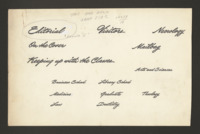 Editorial Visitors Necrology
On the Cover Meeting
Keeping up with the Classes
Arts and Sciences
Business School Library School
Medicine Graduate Theology
Law Dentistry